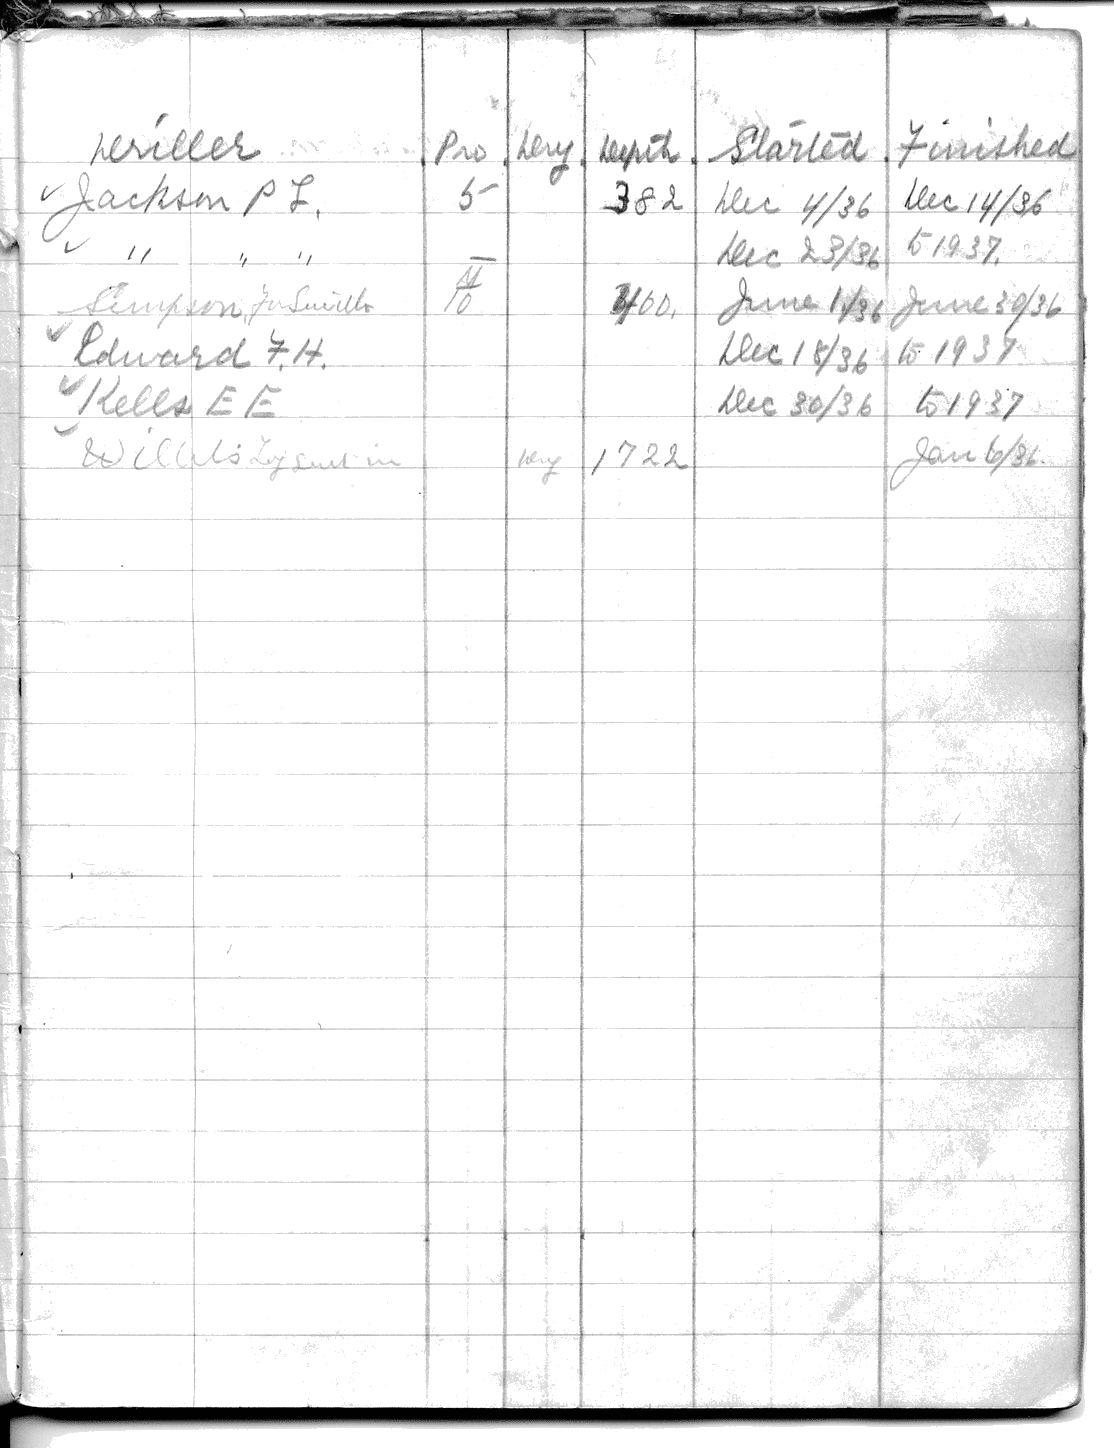 Driller Pro Dry Depth Started Finished
✓ Jackson P L. 5 382 Dec 4/36 Dec 14/36
✓ " " " Dec 23/36 to 1937.
Simpson, 10 400. June 1/36 June 30/36
✓ Edward F. H. Dec 18/36 to 1937
✓ Kells E E Dec 30/36 to 1937
✓ Sent in Dry 1722 Jan 6/36.